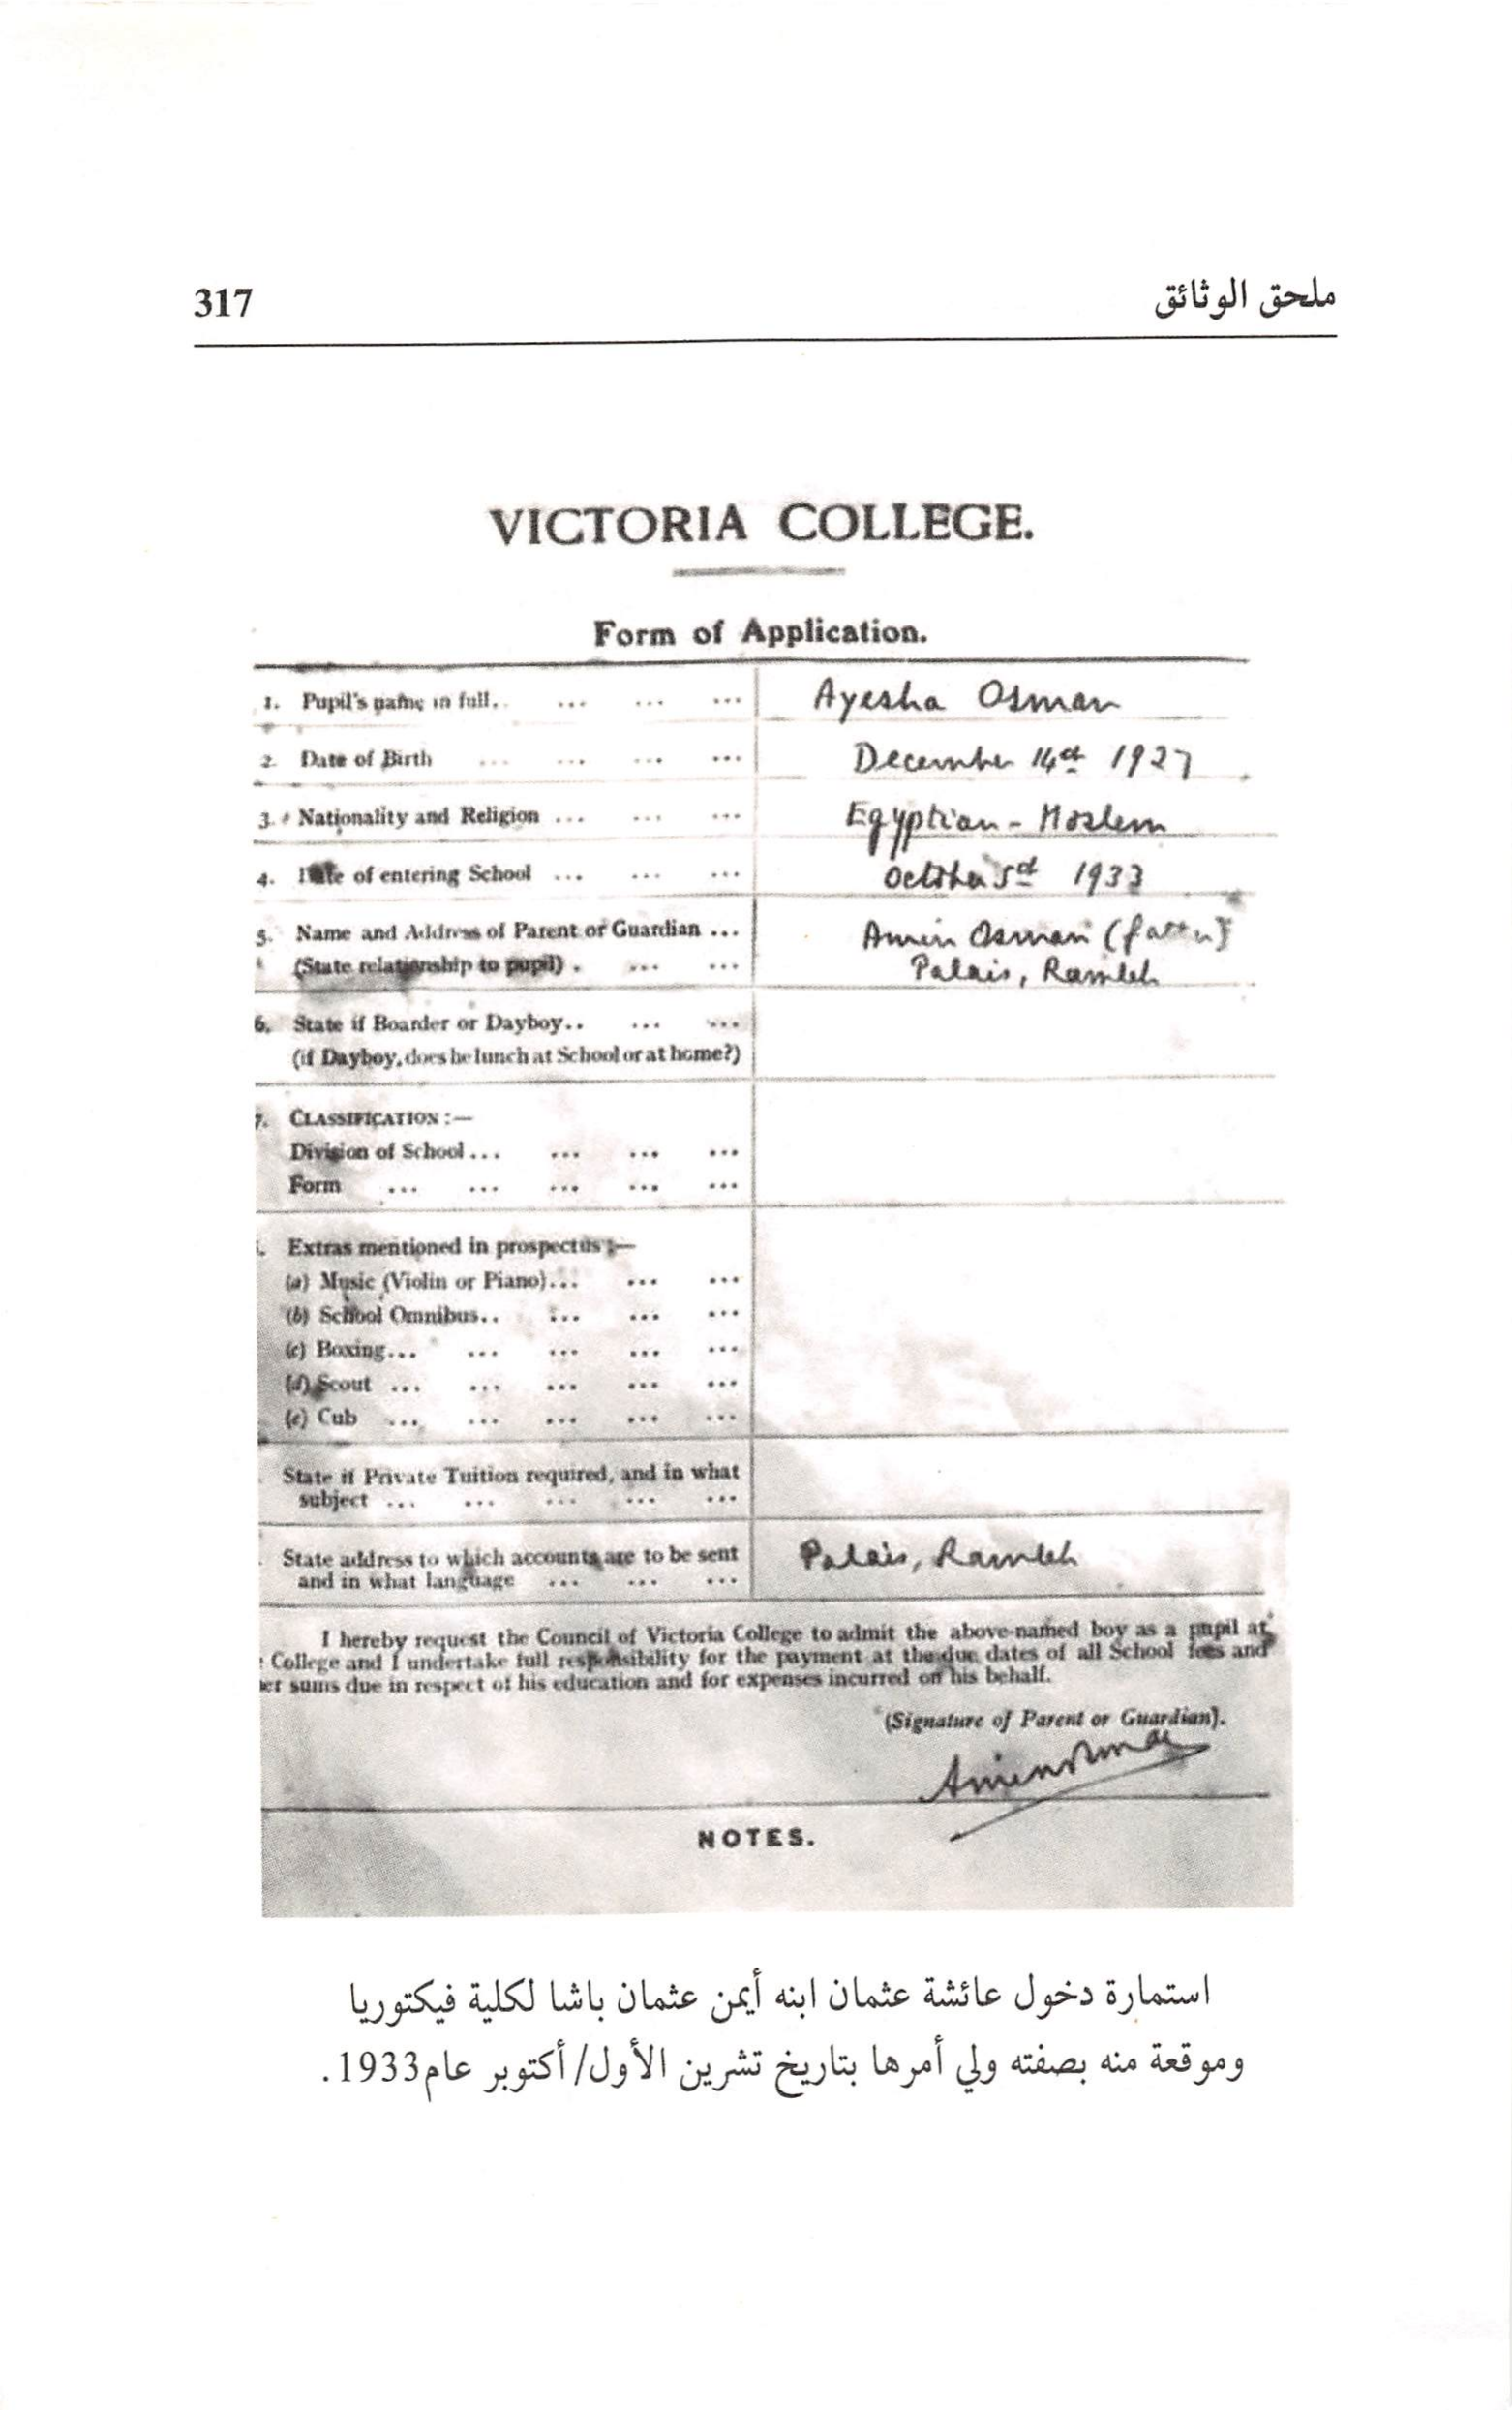 317
ملحق الوثائق
VICTORIA COLLEGE.
Form of Application.
1. Pupil's name in full.. ... ... ... Ayesha Osman
2. Date of Birth ... ... ... ... December 14th 1927
3. Nationality and Religion ... ... ... Egyptian - Moslem
4. Date of entering School ... ... ... October 5th 1933
5. Name and Address of Parent or Guardian ... Amin Osman (father)
(State relationship to pupil) . ... ... Palais, Ramleh
6. State if Boarder or Dayboy.. ... ...
(if Dayboy, does he lunch at School or at home?)
7. CLASSIFICATION :—
Division of School ... ... ... ...
Form ... ... ... ... ...
Extras mentioned in prospectus :—
(a) Music (Violin or Piano)... ... ...
(b) School Omnibus.. ... ... ...
(c) Boxing... ... ... ... ...
(d) Scout ... ... ... ... ...
(e) Cub ... ... ... ... ...
State if Private Tuition required, and in what
subject ... ... ... ... ...
State address to which accounts are to be sent Palais, Ramleh
and in what language ... ... ...
I hereby request the Council of Victoria College to admit the above-named boy as a pupil at
College and I undertake full responsibility for the payment at the due dates of all School fees and
er sums due in respect of his education and for expenses incurred on his behalf.
(Signature of Parent or Guardian).
Aminosman
NOTES.
استمارة دخول عائشة عثمان ابنه أيمن عثمان باشا لكلية فيكتوريا
وموقعة منه بصفته ولي أمرها بتاريخ تشرين الأول/ أكتوبر عام1933.